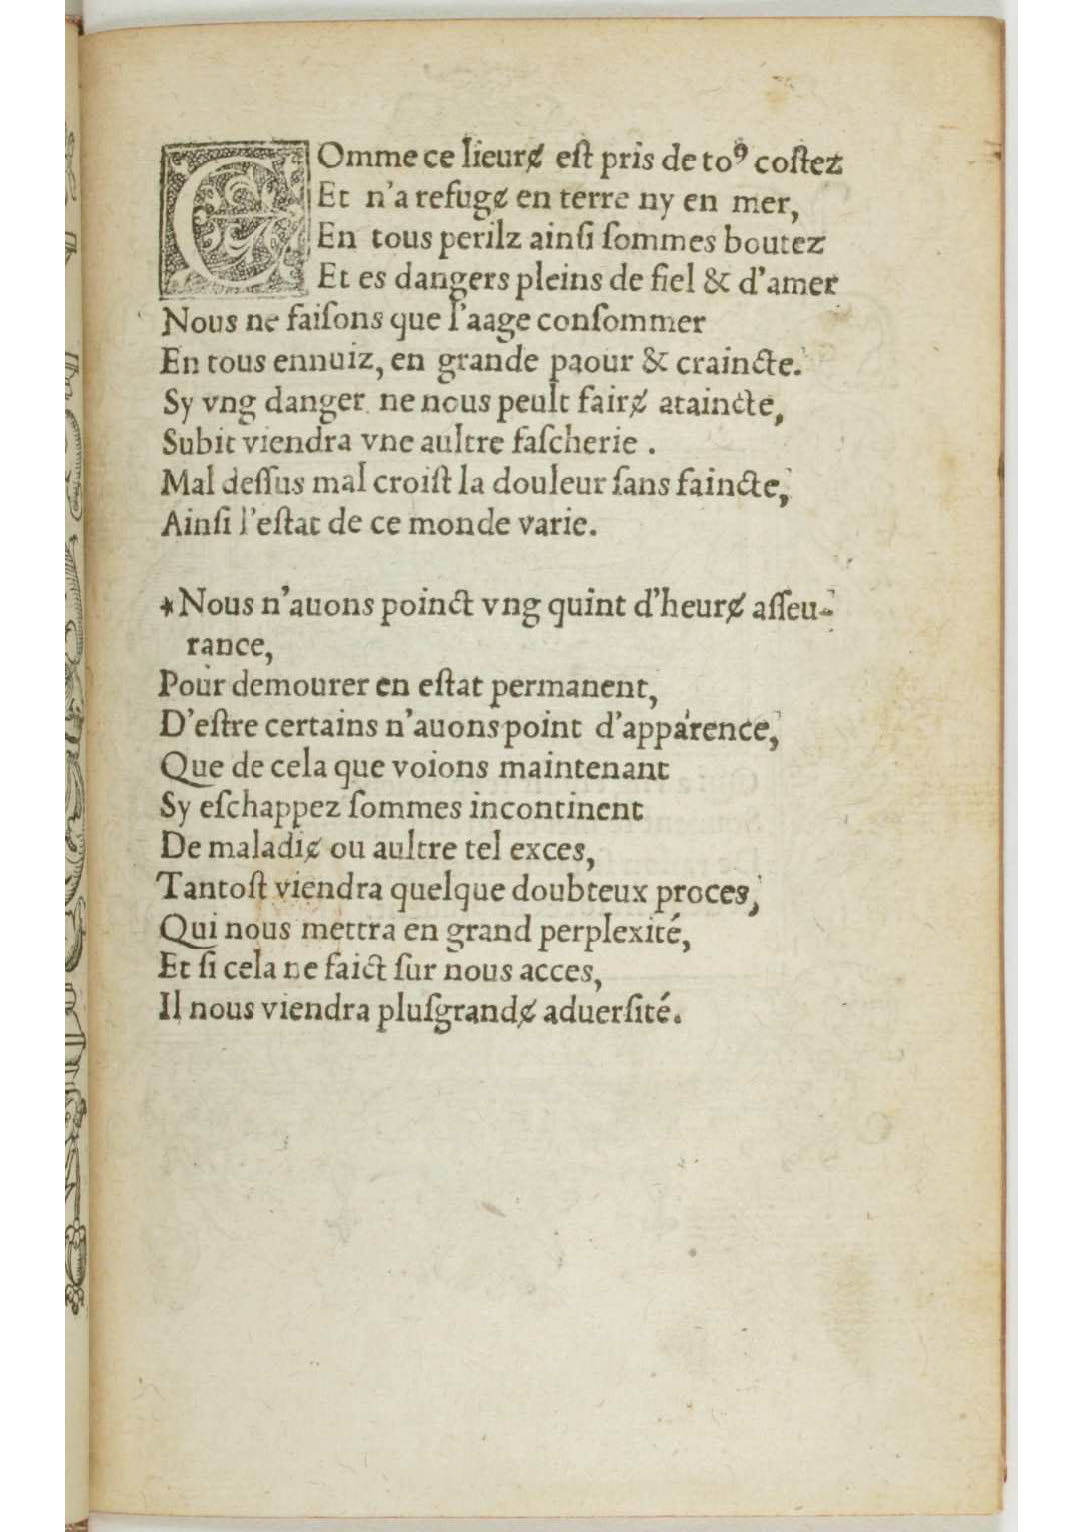 Comme ce lieurɇ eſt pris de toꝰ coſtez
Et n'a refugɇ en terre ny en mer,
En tous perilz ainſi ſommes boutez
Et es dangers pleins de fiel & d'amer
Nous ne faiſons que l'aage conſommer
En tous ennuiz, en grande paour & craincte.
Sy vng danger ne nous peult fairɇ ataincte,
Subit viendra vne aultre faſcherie .
Mal deſſus mal croiſt la douleur ſans faincte,
Ainſi l'eſtat de ce monde varie.

*Nous n'auons poinct vng quint d'heurɇ aſſeu-
rance,
Pour demourer en eſtat permanent,
D'eſtre certains n'auons point d'apparence,
Que de cela que voions maintenant
Sy eſchappez ſommes incontinent
De maladiɇ ou aultre tel exces,
Tantoſt viendra quelque doubteux proces,
Qui nous mettra en grand perplexité,
Et ſi cela ne faict ſur nous acces,
Il nous viendra pluſgrandɇ aduerſité.